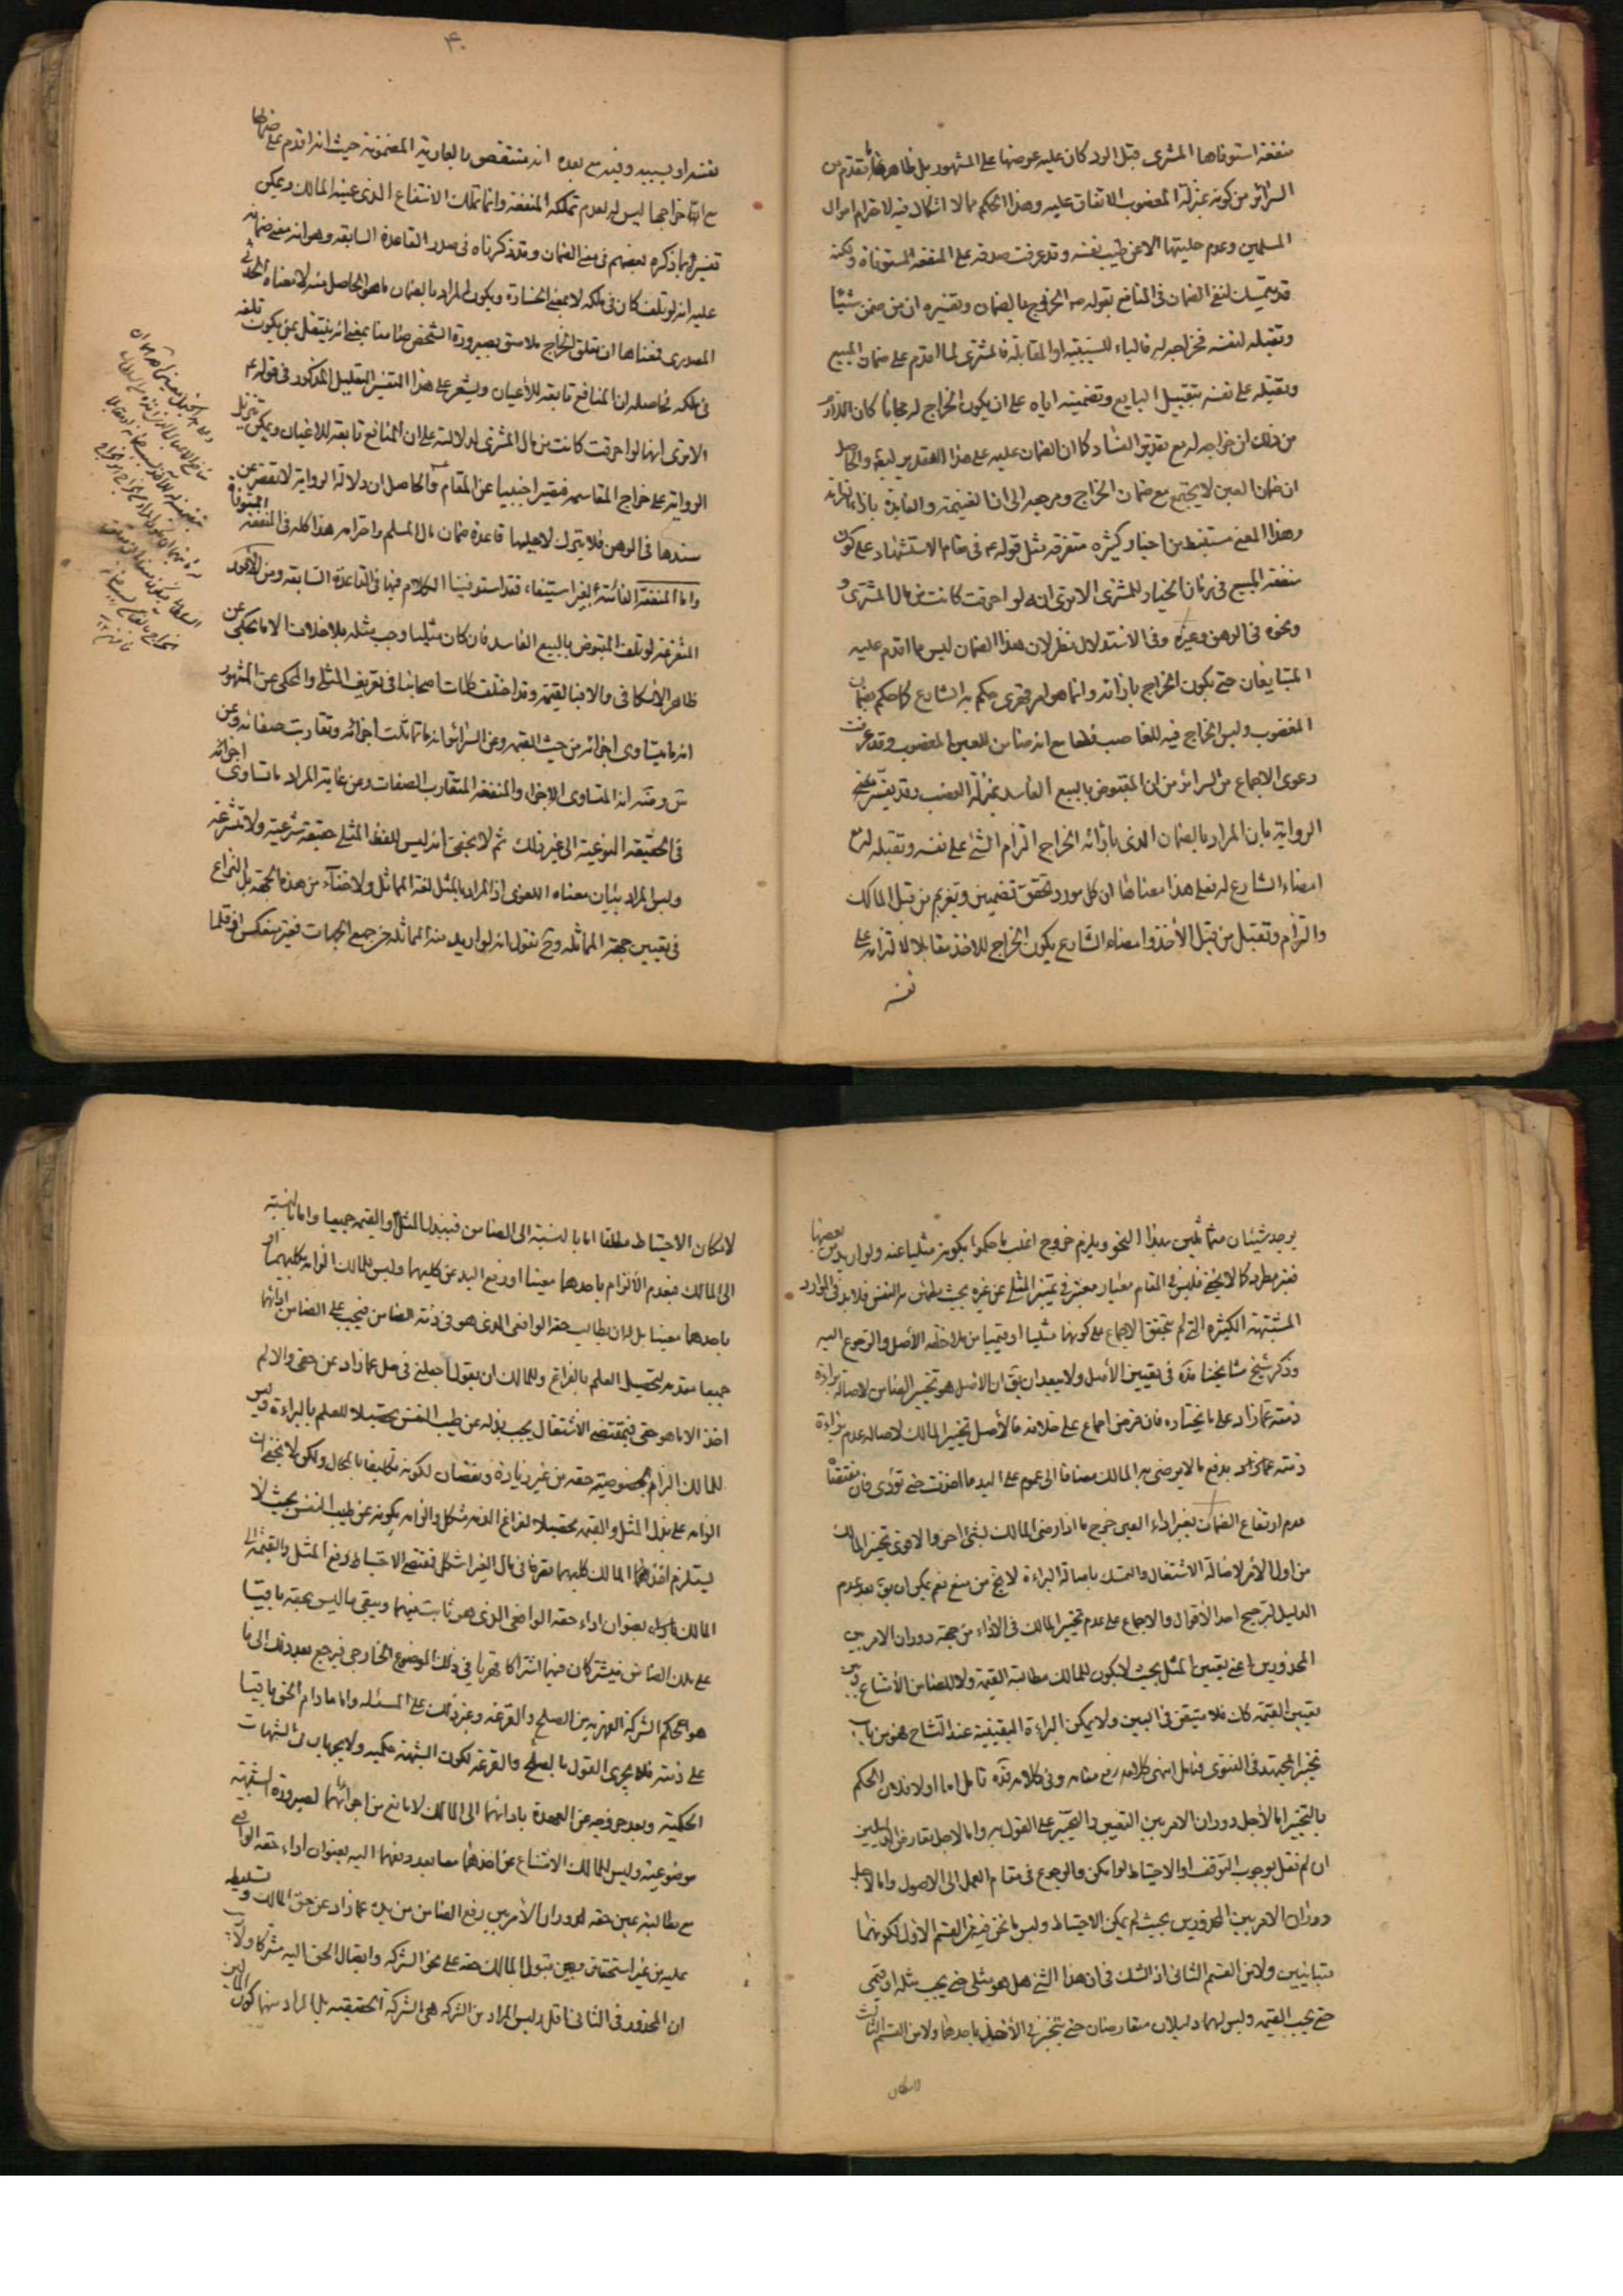 ۴۰
منفعة استوفاها المشتري قبل الرد كان عليه عوضها على المشهور بل ظاهر ما تقدم من
السرائر من كونه بمنزلة المغصوب الاتفاق عليه وهذا الحكم مما لا اشكال فيه لاحترام اموال
المسلمين وعدم حليتها الا عن طيب نفسه وقد عرفت صدقه على المنفعة المستوفاة ولكنه
قد يتمسك لنفي الضمان في المنافع بقوله ص الخراج بالضمان وتفسيره ان من ضمن شيئا
وتقبله لنفسه فخراجه له فالباء للسببية او المقابلة فالمشتري لما اقدم على ضمان المبيع
وتقبله على نفسه بتقبيل البايع وتضمينه اياه على ان يكون الخراج له مجانا كان اللازم
من ذلك ان خراجه له مع تقدير الفساد كما ان الضمان عليه على هذا التقدير ايضا والحاصل
ان ضمان العين لا يجتمع مع ضمان الخراج ومرجعه الى ان الغنيمة والفايدة بازاء الغرامة
وهذا المعنى مستنبط من اخبار كثيرة متفرقة مثل قوله ع في مقام الاستشهاد على كون
منفعة المبيع في زمان الخيار للمشتري الا ترى انه لو احرقت كانت من مال المشتري و
ونحوه في الرهن وغيره وفي الاستدلال نظر لان هذا الضمان ليس مما اقدم عليه
المتبايعان حتى يكون الخراج بازائه وانما هو امر قهري حكم به الشارع كما حكم بضمان
المغصوب وليس الخراج فيه للغاصب قطعا مع انه ضامن للعين المغصوب وقد عرفت
دعوى الاجماع من السرائر من ان المقبوض بالبيع الفاسد بمنزلة الغصب وقد يفسر معنى
الرواية بان المراد بالضمان الذي بازائه الخراج التزام الشئ على نفسه وتقبله له مع
امضاء الشارع له فعلى هذا معناها ان كل مورد تحقق تضمين وتغريم من قبل المالك
والتزام وتقبل من قبل الآخذ وامضاء الشارع يكون الخراج للآخذ مقابلا لالتزامه على
نفسه
نفسه او يسببه وفيه مع بعده انه منتقض بالعارية المضمونة حيث انه اقدم على ضمانها
مع ان خراجها ليس له لعدم تملكه المنفعة وانما تملك الانتفاع الذي عينه المالك ويمكن
تفسيرها بما ذكره بعضهم في معنى الضمان وقد ذكرناه في صدر القاعدة السابقة وهو انه معنى ضمانه
عليه انه لو تلف كان في ملكه لا بمعنى الخسارة ويكون المراد بالضمان ما هو الحاصل منه لا معناه الحدثي
المصدري فمعناها ان تملك الخراج بصيرورة الشخص ضامنا بمعنى انه ينتقل بمن يكون تلفه
في ملكه فحاصله ان المنافع تابعة للأعيان ويشعر على هذا التفسير التعليل المذكور في قوله ع
الا ترى انها لو احرقت كانت من مال المشتري لدلالته على ان المنافع تابعة للاعيان ويمكن تنزيل
الرواية على خراج المقاسمة فيصير اجنبيا عن المقام والحاصل ان دلالة الرواية لا تقصر عن
سندها في الوهن فلا يترك لاجلها قاعدة ضمان مال المسلم واحترامه هذا كله في المنفعة المستوفاة
واما المنفعة الفائتة بغير استيفاء فقد استوفينا الكلام فيها في القاعدة السابقة ومن الأمور
المتفرعة لو تلف المقبوض بالبيع الفاسد فان كان مثليا وجب مثله بلا خلاف الا ما يحكى عن
ظاهر الاسكافي والا فبالقيمة وقد اختلف كلمات اصحابنا في تعريف المثلي والمحكى عن المشهور
انه ما يتساوى اجزائه من حيث القيمة وعن السرائر انه ما تماثلت اجزائه وتقاربت صفاته وعن
س وضه انه المتساوي الاجزاء والمنفعة المتقارب الصفات وعن غاية المراد ما تساوى اجزائه
في الحقيقة النوعية الى غير ذلك ثم لا يخفى انه ليس للفظ المثلي حقيقة شرعية ولا متشرعة
وليس المراد بيان معناه اللغوي اذ المراد بالمثل لغة المماثل ولا خفاء من هذه الجهة بل النزاع
في تعيين جهة المماثلة وح نقول انه لو اريد منه المماثلة من جميع الجهات فغير منعكس اذ قلما
يوجد شيئان متماثلين بهذا النحو ويلزم خروج اغلب ما حكموا بكونه مثليا عنه ولو اريد من بعضها
فغير مطرد كما لا يخفى فليس في المقام معيار معتبر في تميز المثلي عن غيره بحيث يطمئن به النفس فلا بد في الموارد
المشتبهة الكثيرة التي لم يتحقق الاجماع على كونها مثليا او قيميا من ملاحظة الأصل والرجوع اليه
وذكر شيخ مشايخنا قده في تعيين الأصل ولا يبعد ان يق ان الأصل هو تخيير الضامن لاصالة براءة
ذمته عما زاد على ما يختاره فان فرض اجماع على خلافه فالأصل تخيير المالك لاصالة عدم براءة
ذمته عما زاد بدفع ما لا يرضى به المالك مضافا الى عموم على اليد ما اخذت حتى تؤدي فان مقتضاه
عدم ارتفاع الضمان بغير اداء العين خرج ما اذا رضى المالك بشئ آخر والاقوى تخيير المالك
من اول الأمر لاصالة الاشتغال والتمسك باصالة البراءة لا يخ من منع نعم يمكن ان يق بعد عدم
الدليل لترجيح احد الأقوال والاجماع على عدم تخيير المالك في الاداء من جهة دوران الامر بين
المحذورين اعني تعيين المثل بحيث لا يكون للمالك مطالبة القيمة ولا للضامن الامتناع وبين
تعيين القيمة كك فلا متيقن في البين ولا يمكن البراءة اليقينية عند التشاح فهو من باب
تخيير المجتهد في الفتوى فتأمل انتهى كلامه رفع مقامه وفي كلامه قده تأمل اما اولا فلان الحكم
بالتخيير اما لأجل دوران الامر بين التعيين والتخيير على القول به واما لاجل تعارض الدليلين
ان لم نقل بوجوب التوقف او الاحتياط لو امكن والرجوع في مقام العمل الى الاصول واما لاجل
دوران الامر بين المحذورين بحيث لم يمكن الاحتياط وليس ما نحن فيه من القسم الاول لكونهما
متباينين ولا من القسم الثاني اذ الشك في ان هذا الشئ هل هو مثلي حتى يجب مثله او قيمي
حتى يجب القيمة وليس لهما دليلان متعارضان حتى يتخير في الأخذ باحدهما ولا من القسم الثالث
لامكان
لامكان الاحتياط مطلقا اما بالنسبة الى الضامن فببذل المثل والقيمة جميعا واما بالنسبة
الى المالك فبعدم الالزام باحدهما معينا او رفع اليد عن كليهما وليس للمالك الزامه بكليهما او
باحدهما معينا بل له ان يطالب حقه الواقعي الذي هو في ذمة الضامن فيجب على الضامن ادائهما
جميعا مقدمة لتحصيل العلم بالفراغ وللمالك ان يقول اجعلني في حل عما زاد عن حقي والا لم
اخذ الا ما هو حقي فبمقتضى الاشتغال يجب بذله عن طيب النفس تحصيلا للعلم بالبراءة وليس
للمالك الزامه بخصوصية حقه من غير زيادة ونقصان لكونه تكليفا بالمحال ولكن لا يخفى ان
الزامه على بذل المثل والقيمة تحصيلا لفراغ الذمة مشكل والزامه بكونه عن طيب النفس بحيث لا
يستلزم اخذهما المالك كليهما تصرفا في مال الغير اشكل فمقتضى الاحتياط دفع المثل والقيمة الى
المالك بعنوان اداء حقه الواقعي الذي هو ثابت فيهما ويبقى ما ليس بحقه باقيا
على ملك الضامن فيشتركان فيهما اشتراكا قهريا في ذلك الموضوع الخارجي فيرجع بعد ذلك الى ما
هو احكام الشركة القهرية من الصلح والقرعة وغير ذلك على المسئلة واما ما دام الحق باقيا
على ذمته فلا يجري القول بالصلح والقرعة لكون الشبهة حكمية ولا يجريان في الشبهات
الحكمية وبعد خروجه عن العهدة بادائهما الى المالك لا مانع من اجرائهما لصيرورة الشبهة
موضوعية وليس للمالك الامتناع عن اخذهما معا بعد دفعهما اليه بعنوان اداء حقه الواقعي
مع مطالبة عين حقه لدوران الأمر بين رفع الضامن من يده عما زاد عن حق المالك وتسليطه
عليه من غير استحقاق وبين قبول المالك حقه على نحو الشركة وايصال الحق اليه مشتركا ولا ريب
ان المحذور في الثاني اقل وليس المراد من الشركة هي الشركة الحقيقية بل المراد منها كون المالين